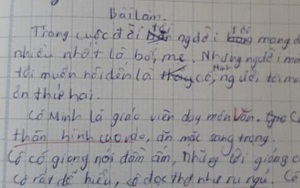 Bài làm.
Trong cuộc đời người mang
nhiều nhất là bố, mẹ. Nhưng người mà
tôi muốn nói đến là cô, Minh người
ơn thứ hai.
Cô Minh là giáo viên dạy môn Văn. Cô
thân hình cao, ăn mặc sang trọng.
Cô có giọng nói đầm ấm, những lời giảng c
cô rất dễ hiểu, cô đọc thơ như ru ngủ. Cô